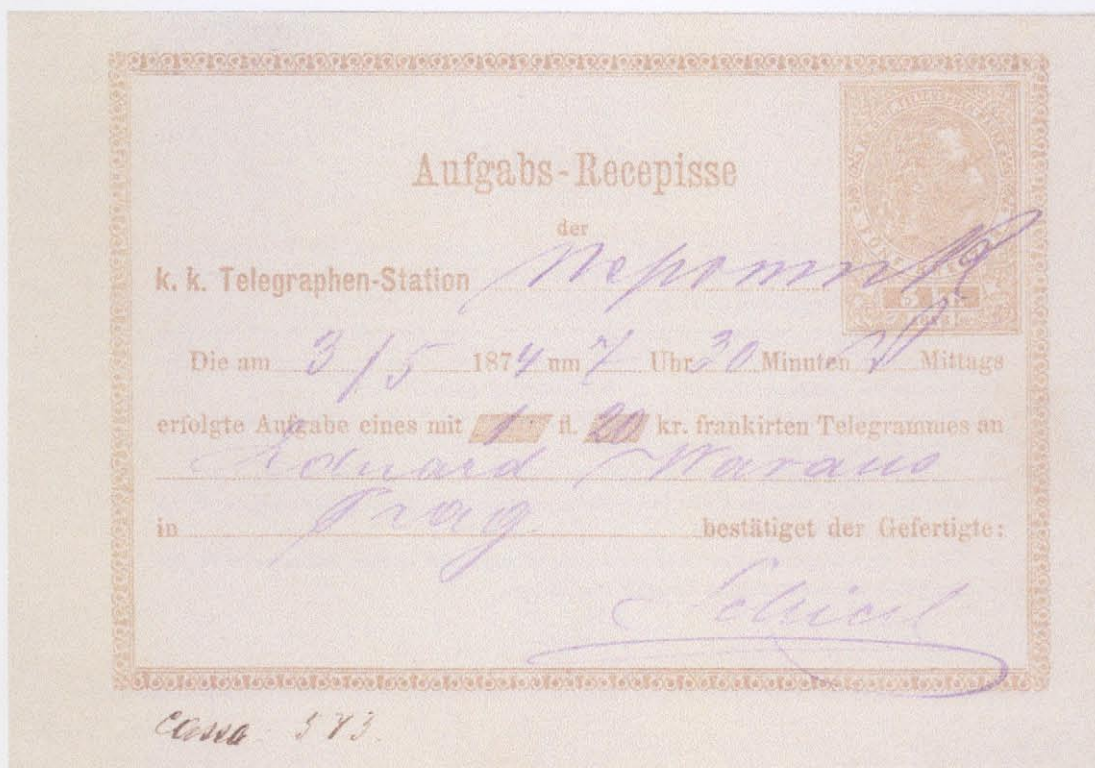 Aufgabs-Recepisse
der
k. k. Telegraphen-Station Nepomuk
Die am 3/5 1874 um 7 Uhr 30 Minuten V Mittags
erfolgte Aufgabe eines mit 1 fl. 20 kr. frankirten Telegrammes an
Eduard
in Prag. bestätiget der Gefertigte:
5 kr.
Cassa 573.